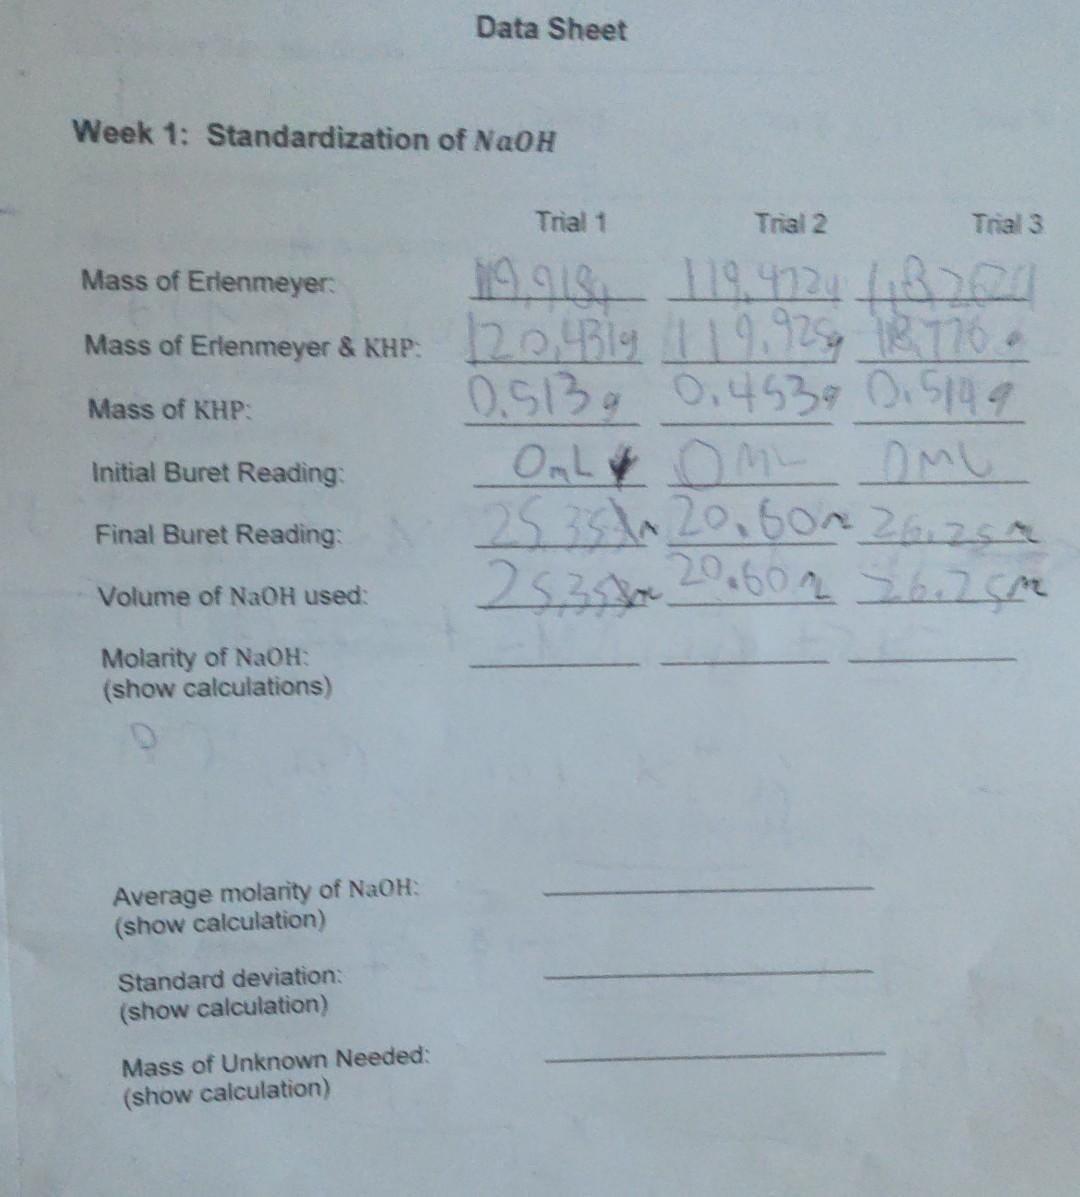 Data Sheet
Week 1: Standardization of NaOH
Trial 1 Trial 2 Trial 3
Mass of Erlenmeyer: 119.918g 119.472g 118.262g
Mass of Erlenmeyer & KHP: 120.431g 119.925g 118.776g
Mass of KHP: 0.513g 0.453g 0.514g
Initial Buret Reading: 0mL 0mL 0mL
Final Buret Reading: 20.60m 26.25m
Volume of NaOH used: 20.60m 26.25m
Molarity of NaOH:
(show calculations)
Average molarity of NaOH:
(show calculation)
Standard deviation:
(show calculation)
Mass of Unknown Needed:
(show calculation)